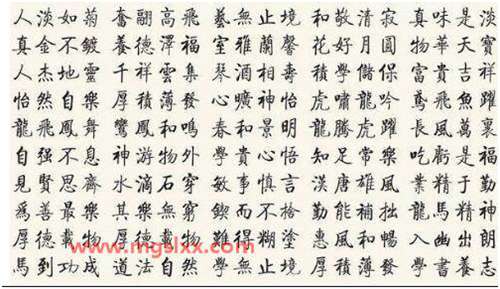 人淡如菊 奮翮高飛 藝無止境 和敬清寂 真味是淡
真金不鍍 養德澤福 室雅蘭馨 花好月圓 物華天寶
人杰地靈 千祥雲集 琴酒相壽 積學儲保 富貴吉祥
怡然自樂 厚積薄發 心曠神怡 虎嘯龍吟 鳶飛魚躍
龍飛鳳舞 鸞鳳和鳴 春和景明 龍騰虎躍 長風萬裏
自强不息 神游物外 學貴心悟 知足常樂 吃虧是福
見賢思齊 水滴石穿 敏事慎言 漢唐雄風 業精于勤
爲善最樂 其樂無窮 鍥而不捨 勤能補拙 龍馬精神
厚德載物 難得糊塗 惠風和暢 入幽出朗
www.mgslxx.com
馬到功成 道法自然 學無止境 厚積薄發 學書養志